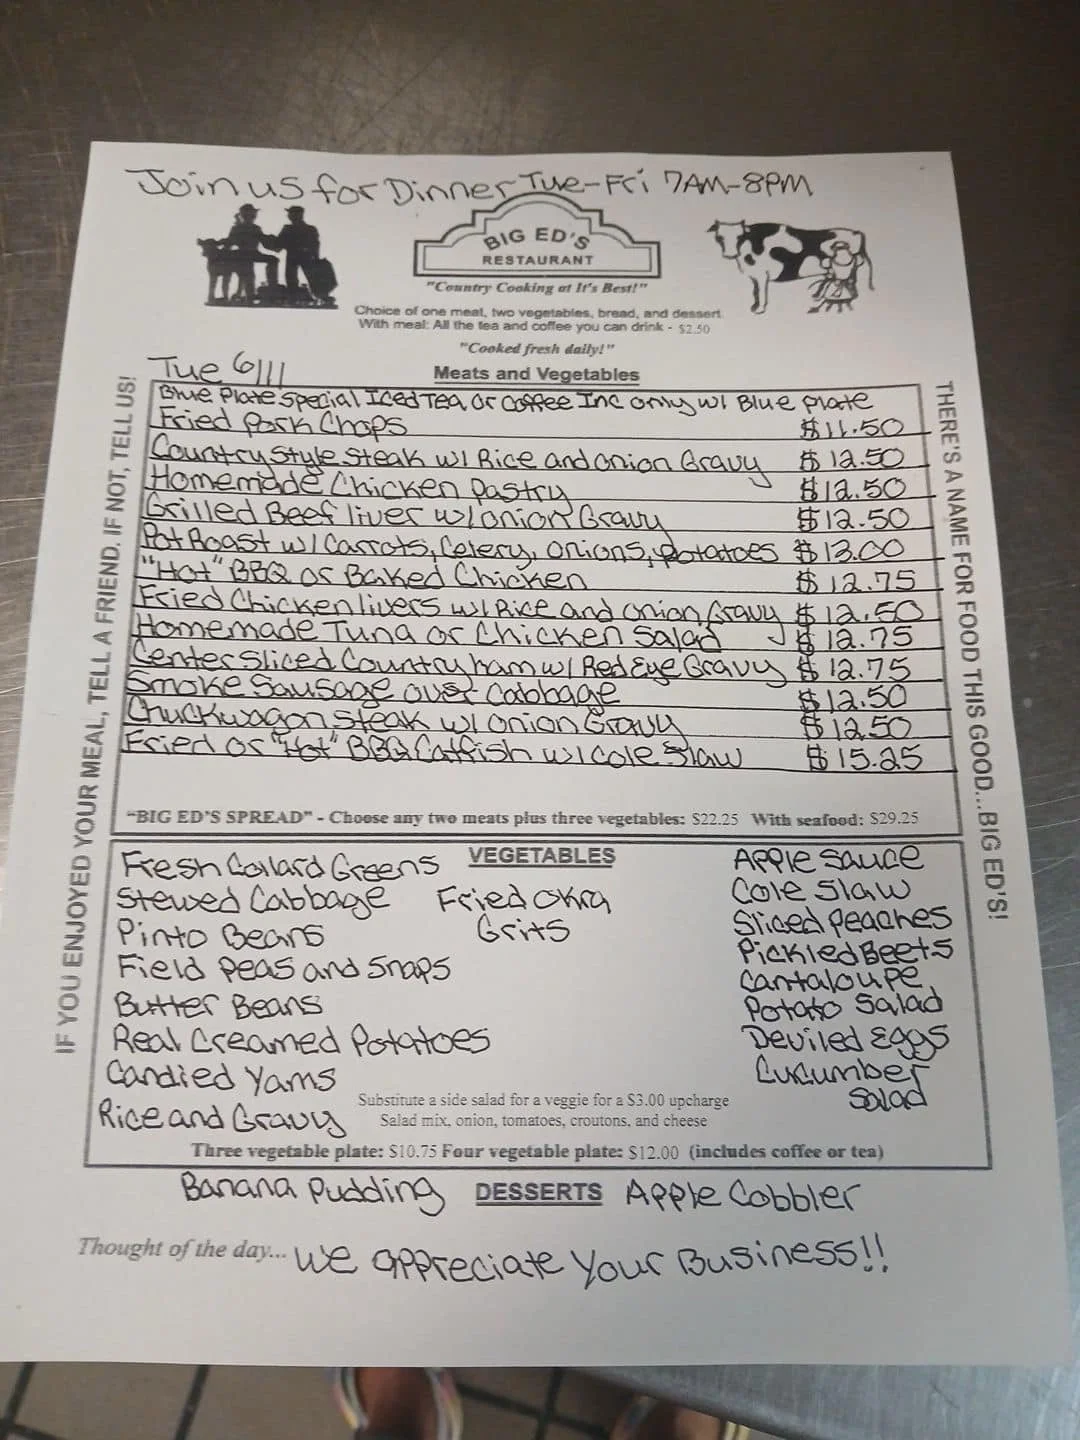 Join us for Dinner Tue-Fri 7AM-8PM
BIG ED'S
RESTAURANT
"Country Cooking at It's Best!"
Choice of one meat, two vegetables, bread, and dessert
With meal: All the tea and coffee you can drink - $2.50
"Cooked fresh daily!"
Tue 6/11
Meats and Vegetables
Blue Plate Special Iced Tea or Coffee Inc only w/ Blue plate
Fried Pork Chops $11.50
Country Style Steak w/ Rice and Onion Gravy $12.50
Homemade Chicken Pastry $12.50
Grilled Beef liver w/ onion Gravy $12.50
Pot Roast w/ Carrots, Celery, Onions, potatoes $13.00
"Hot" BBQ or Baked Chicken $12.75
Fried Chicken livers w/ Rice and Onion Gravy $12.50
Homemade Tuna or Chicken Salad $12.75
Center Sliced Country ham w/ Red Eye Gravy $12.75
Smoke Sausage over Cabbage $12.50
Chuckwagon Steak w/ onion Gravy $12.50
Fried or "Hot" BBQ Catfish w/ Cole Slaw $15.25
"BIG ED'S SPREAD" - Choose any two meats plus three vegetables: $22.25 With seafood: $29.25
VEGETABLES
Fresh Collard Greens
Stewed Cabbage
Pinto Beans
Field Peas and Snaps
Butter Beans
Real Creamed Potatoes
Candied Yams
Rice and Gravy
Fried Okra
Grits
Apple Sauce
Cole Slaw
Sliced Peaches
Pickled Beets
Cantaloupe
Potato Salad
Deviled Eggs
Cucumber
Salad
Substitute a side salad for a veggie for a $3.00 upcharge
Salad mix, onion, tomatoes, croutons, and cheese
Three vegetable plate: $10.75 Four vegetable plate: $12.00 (includes coffee or tea)
Banana Pudding DESSERTS Apple Cobbler
Thought of the day... We appreciate Your Business!!
IF YOU ENJOYED YOUR MEAL, TELL A FRIEND. IF NOT, TELL US!
THERE'S A NAME FOR FOOD THIS GOOD...BIG ED'S!